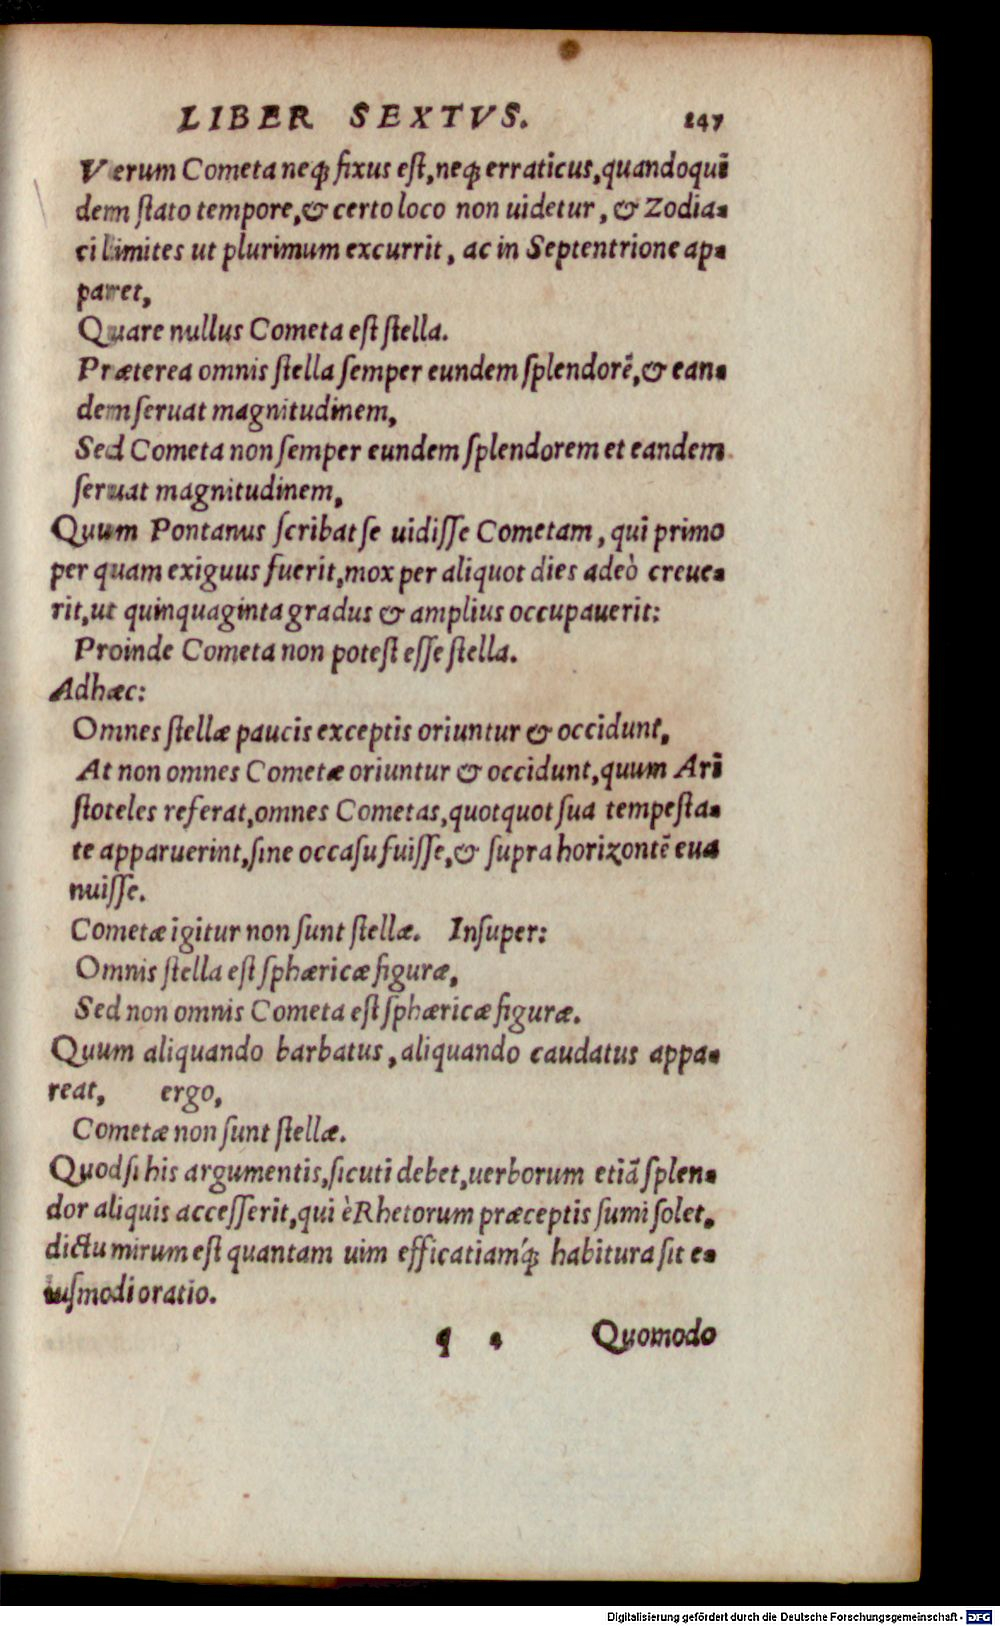 LIBER SEXTVS. 247
Verum Cometa neqꝫ fixus est, neqꝫ erraticus, quandoquĩ
dem stato tempore, & certo loco non uidetur, & Zodia-
ci limites ut plurimum excurrit, ac in Septentrione ap-
paret,
Quare nullus Cometa est stella.
Præterea omnis stella semper eundem splendorẽ, & ean-
dem seruat magnitudinem,
Sed Cometa non semper eundem splendorem et eandem
seruat magnitudinem,
Quum Pontanus scribat se uidisse Cometam, qui primo
per quam exiguus fuerit, mox per aliquot dies adeò creue-
rit, ut quinquaginta gradus & amplius occupauerit:
Proinde Cometa non potest esse stella.
Adhæc:
Omnes stellæ paucis exceptis oriuntur & occidunt,
At non omnes Cometæ oriuntur & occidunt, quum Arĩ
stoteles referat, omnes Cometas, quotquot sua tempesta-
te apparuerint, sine occasu fuisse, & supra horizontẽ eua
nuisse.
Cometæ igitur non sunt stellæ. Insuper:
Omnis stella est sphæricæ figuræ,
Sed non omnis Cometa est sphæricæ figuræ.
Quum aliquando barbatus, aliquando caudatus appa-
reat, ergo,
Cometæ non sunt stellæ.
Quod si his argumentis, sicuti debet, uerborum etiã splen-
dor aliquis accesserit, qui è Rhetorum præceptis sumi solet,
dictu mirum est quantam uim efficatiam´qꝫ habitura sit e-
iusmodi oratio.
q 4 Quomodo
Digitalisierung gefördert durch die Deutsche Forschungsgemeinschaft - DFG